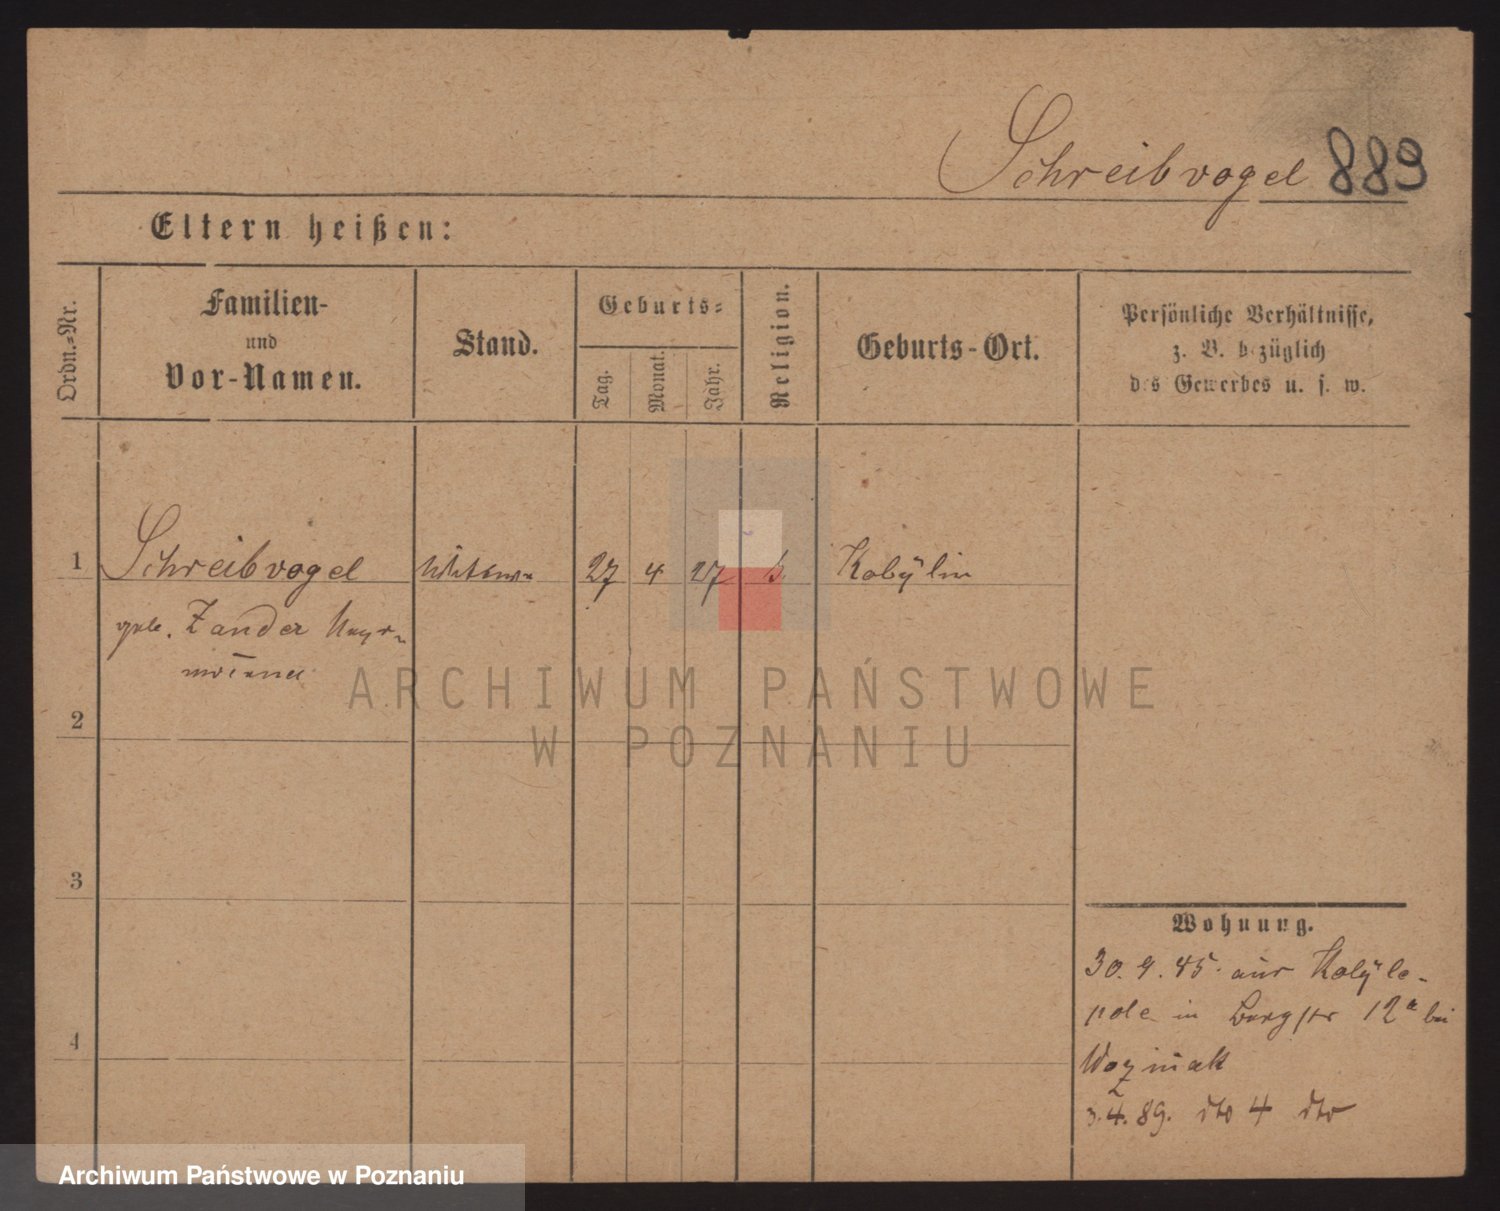 Schreibvogel 889
Eltern heißen:
Ordn.-Nr.
Familien-
und
Vor-Namen.
Stand.
Geburts-
Tag.
Monat.
Jahr.
Religion.
Geburts-Ort.
Persönliche Verhältnisse,
z. B. bezüglich
des Gewerbes u. s. w.
1 Schreibvogel 27 4 27 Kobÿlin
geb. Zander
2
3
4
Wohnung.
30. 9. 85. aus Kobÿle-
pole in Bergstr 12a bei
Wozniak
3. 4. 89. dto 4 dto
ARCHIWUM PAŃSTWOWE
W POZNANIU
Archiwum Państwowe w Poznaniu